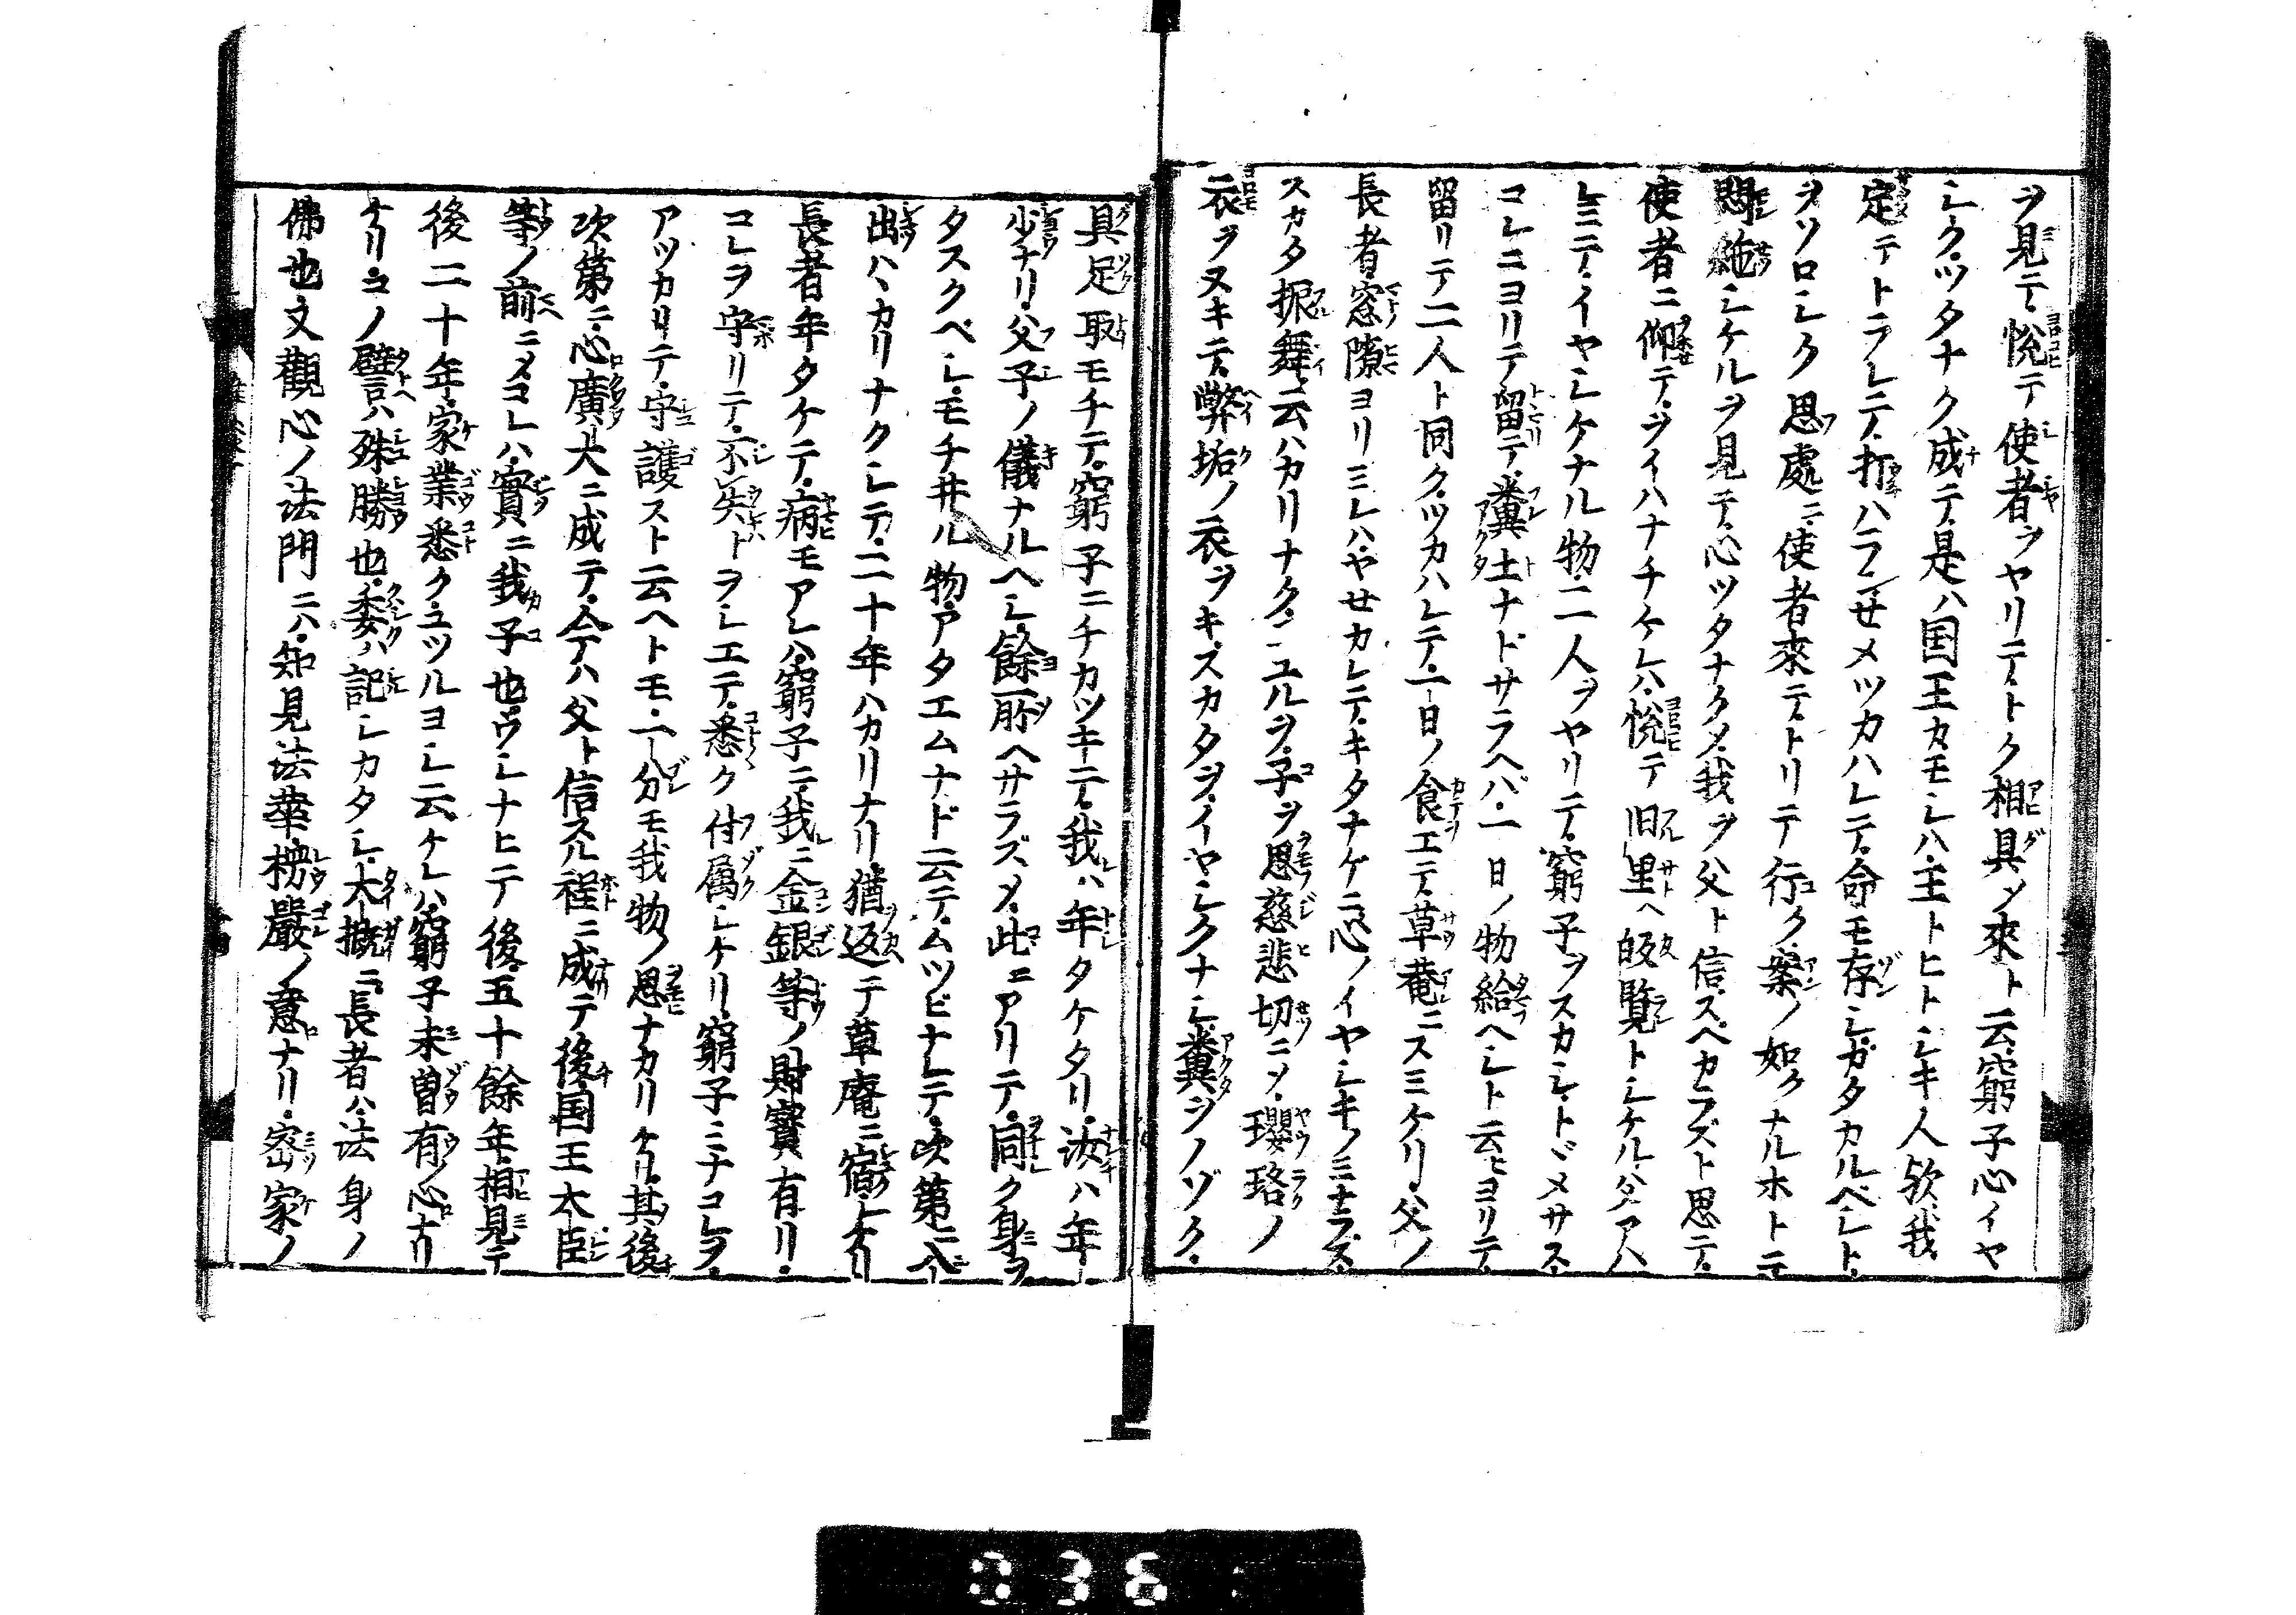 ヲ見テ悦テ使者ヲヤリテトク相具〆來ト云窮子心イヤ
シクツタナク成テ是ハ国王カモシハ王トヒトシキ人欤我
定テトラレテ打ハラレせメツカハレテ命モ存シガタカルベシト
ヲソロシク思處ニ使者來テトリテ行ク案ノ如クナルホトニ
悶絶シケルヲ見テ心ツタナク〆我ヲ父ト信スベカラズト思テ
使者ニ仰テヲイハナチケレハ悦テ旧里ヘ皈覽トシケルガアハ
レミテイヤシケナル物二人ヲヤリテ窮子ヲスカシトヾメサス
コレニヨリテ留テ糞土ナドサラヘバ一日ノ物給ヘシト云ヒヨリテ
留リテ二人ト同クツカハレテ一日ノ食エテ草菴ニスミケリ父ノ
長者窓隙ヨリミレハヤせカレテキタナゲニ心ノイヤシキノミナラズ
スカタ振舞云ハカリナクミユルヲ子ヲ思慈悲切ニ〆瓔珞ノ
衣ヲヌキテ弊垢ノ衣ヲキスカタヲイヤシクナシ糞ヲノゾク
具足取モチテ窮子ニチカツキテ我ハ年タケタリ汝ハ年
少ナリ父子ノ儀ナルヘシ餘所ヘサラズ〆此ニアリテ同ク身ヲ
タスクベシモチ井ル物アタエムナド云テムツビナレテ次第ニ入
出ハヽカリナクシテ二十年ハカリナリ猶返テ草庵ニ宿シケリ
長者年タケテ病モアレハ窮子ニ我ニ金銀等ノ財寳有リ
コレヲ守リテ不失トヲシエテ悉ク付属シケリ窮子ミナコレヲ
アツカリテ守護スト云ヘトモ一分モ我物ノ思ナカリケリ其後
次第ニ心廣大ニ成テ今ハ父ト信スル程ニ成テ後国王大臣
等ノ前ニ〆コレハ實ニ我子也ウシナヒテ後五十餘年相見テ
後二十年家業悉クユツルヨシ云ケレハ窮子未曽有ノ心ナリ
ケリコノ譬ハ殊勝也委ハ記シカタシ大概ニ長者ハ法身ノ
佛也文觀心ノ法門ニハ知見法華楞嚴ノ意ナリ密家ノ
036